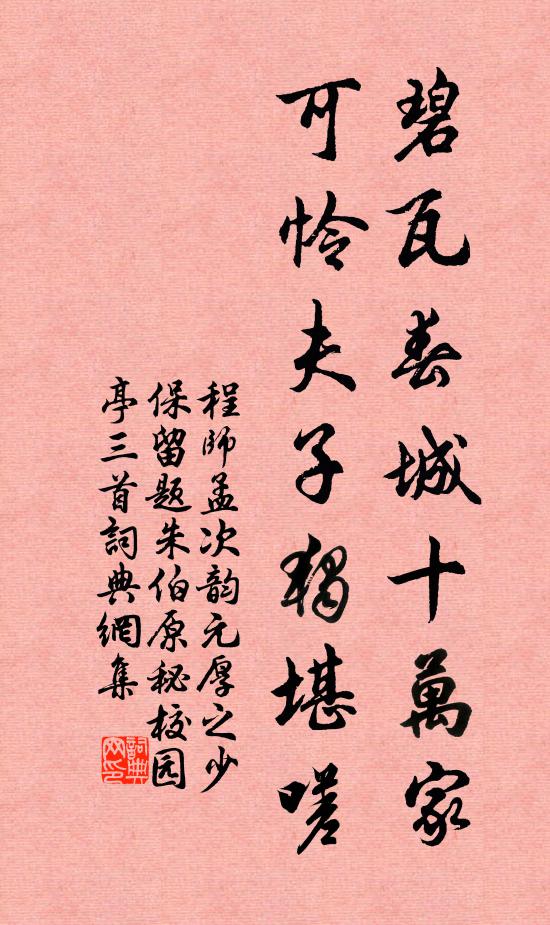 碧瓦春城十萬家
可怜夫子獨堪嗟
程師孟次韵元厚之少
保留題朱伯原秘校园
亭三首詞典網集
詞典网印